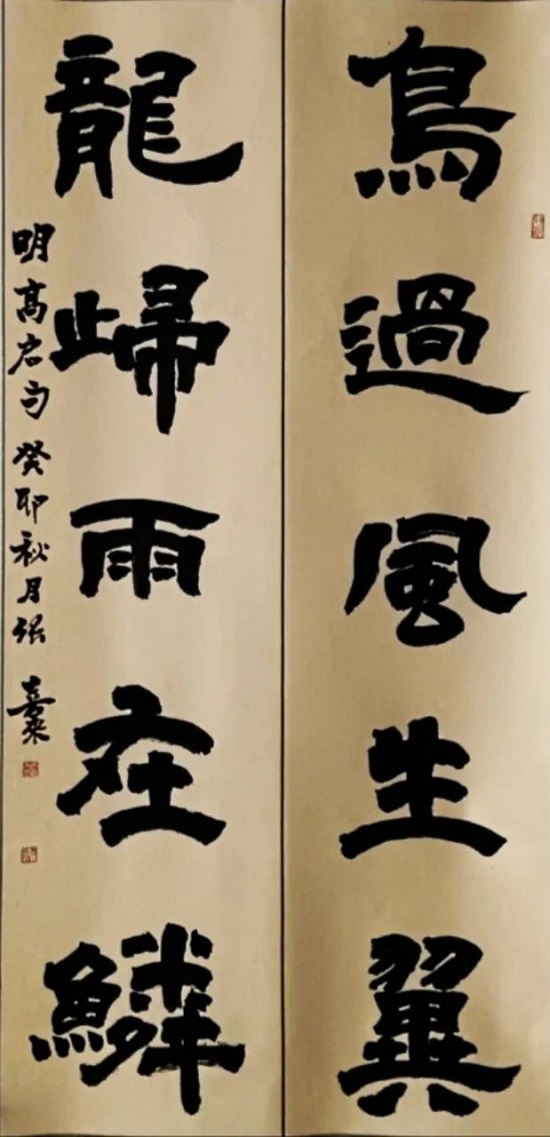 鳥過風生翼
龍歸雨在鱗
明高启句 癸卯秋月 張嘉來